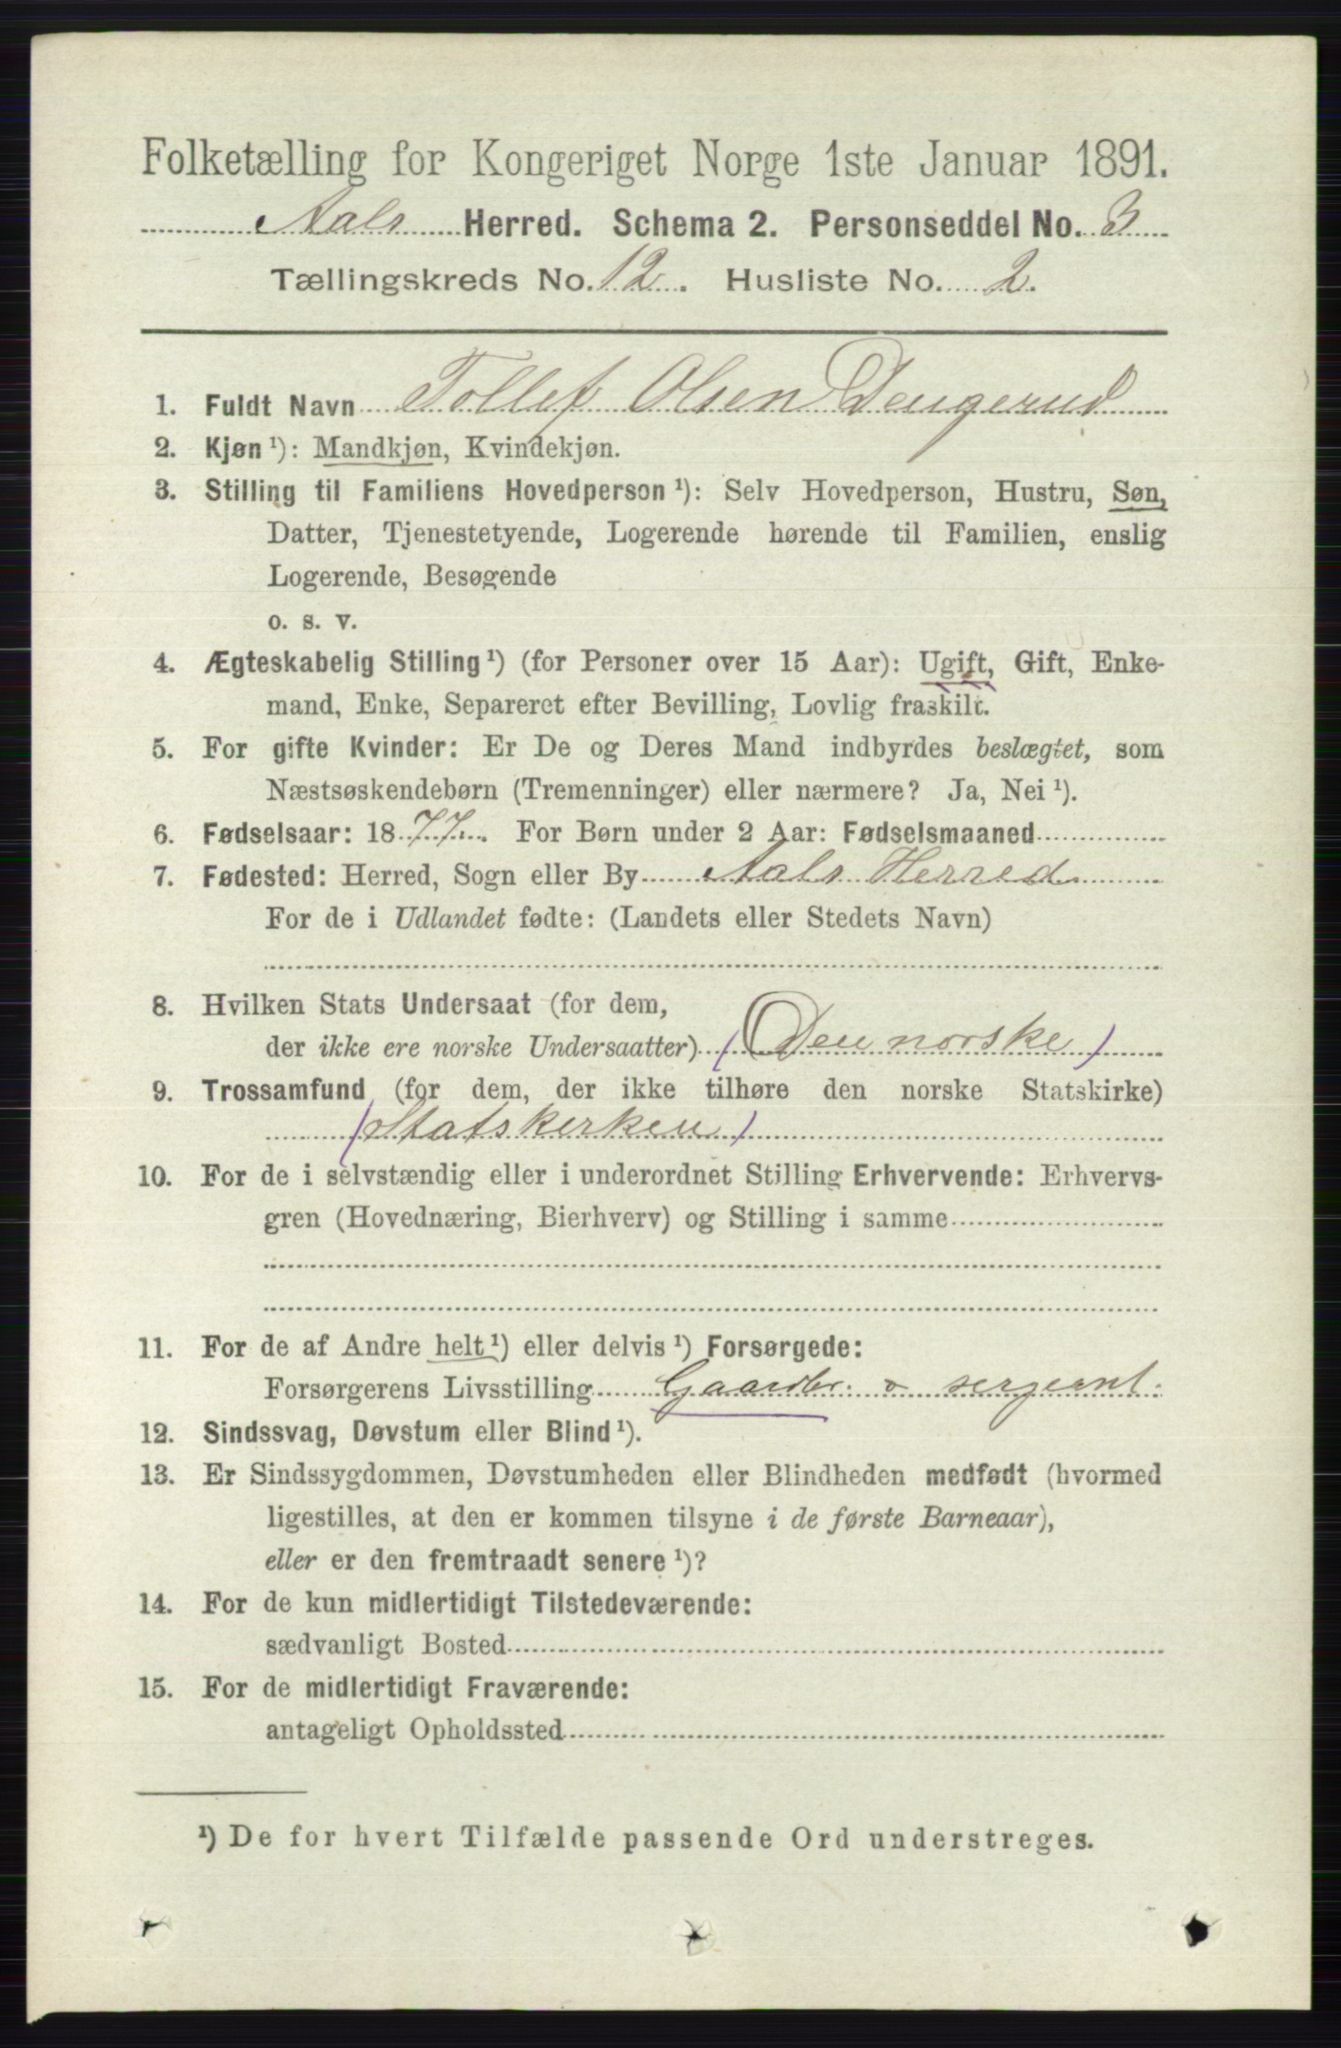 Folketælling for Kongeriget Norge 1ste Januar 1891.
Aals Herred. Schema 2. Personseddel No. 3
Tællingskreds No. 12. Husliste No. 2.
1. Fuldt Navn Tollef Olsen Dengerud
2. Kjøn ¹): Mandkjøn, Kvindekjøn.
3. Stilling til Familiens Hovedperson ¹): Selv Hovedperson, Hustru, Søn,
Datter, Tjenestetyende, Logerende hørende til Familien, enslig
Logerende, Besøgende
o. s. v.
4. Ægteskabelig Stilling ¹) (for Personer over 15 Aar): Ugift, Gift, Enke-
mand, Enke, Separeret efter Bevilling, Lovlig fraskilt.
5. For gifte Kvinder: Er De og Deres Mand indbyrdes beslægtet, som
Næstsøskendebørn (Tremenninger) eller nærmere? Ja, Nei ¹).
6. Fødselsaar: 1877. For Børn under 2 Aar: Fødselsmaaned
7. Fødested: Herred, Sogn eller By Aals Herred
For de i Udlandet fødte: (Landets eller Stedets Navn)
8. Hvilken Stats Undersaat (for dem,
der ikke ere norske Undersaatter) (Den norske)
9. Trossamfund (for dem, der ikke tilhøre den norske Statskirke)
(Statskerken)
10. For de i selvstændig eller i underordnet Stilling Erhvervende: Erhvervs-
gren (Hovednæring, Bierhverv) og Stilling i samme
11. For de af Andre helt ¹) eller delvis ¹) Forsørgede:
Forsørgerens Livsstilling Gaardbr. o sergeant.
12. Sindssvag, Døvstum eller Blind ¹).
13. Er Sindssygdommen, Døvstumheden eller Blindheden medfødt (hvormed
ligestilles, at den er kommen tilsyne i de første Barneaar),
eller er den fremtraadt senere ¹)?
14. For de kun midlertidigt Tilstedeværende:
sædvanligt Bosted
15. For de midlertidigt Fraværende:
antageligt Opholdssted
¹) De for hvert Tilfælde passende Ord understreges.